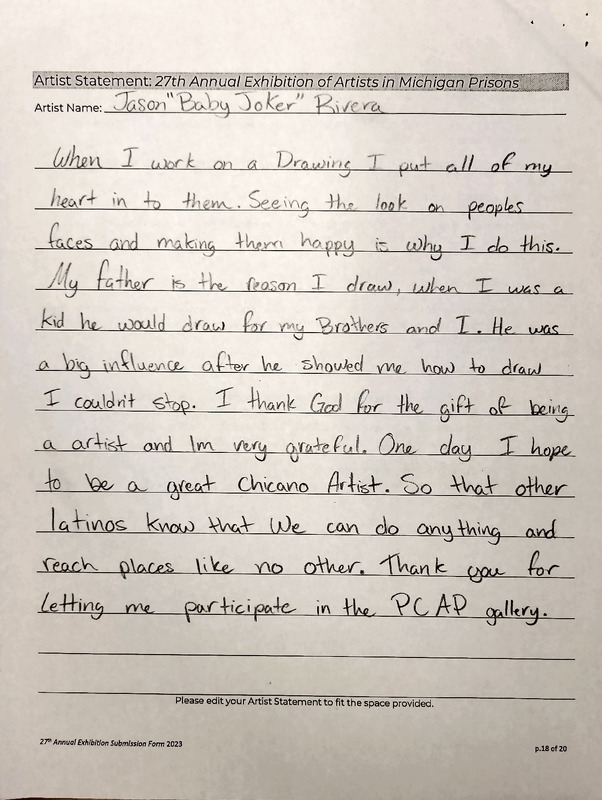 Artist Statement: 27th Annual Exhibition of Artists in Michigan Prisons
Artist Name: Jason "Baby Joker" Rivera
When I work on a Drawing I put all of my
heart in to them. Seeing the look on peoples
faces and making them happy is why I do this.
My father is the reason I draw, when I was a
kid he would draw for my Brothers and I. He was
a big influence after he showed me how to draw
I couldn't stop. I thank God for the gift of being
a artist and Im very grateful. One day I hope
to be a great Chicano Artist. So that other
latinos know that We can do anything and
reach places like no other. Thank you for
letting me participate in the PCAP gallery.
Please edit your Artist Statement to fit the space provided.
27th Annual Exhibition Submission Form 2023
p.18 of 20